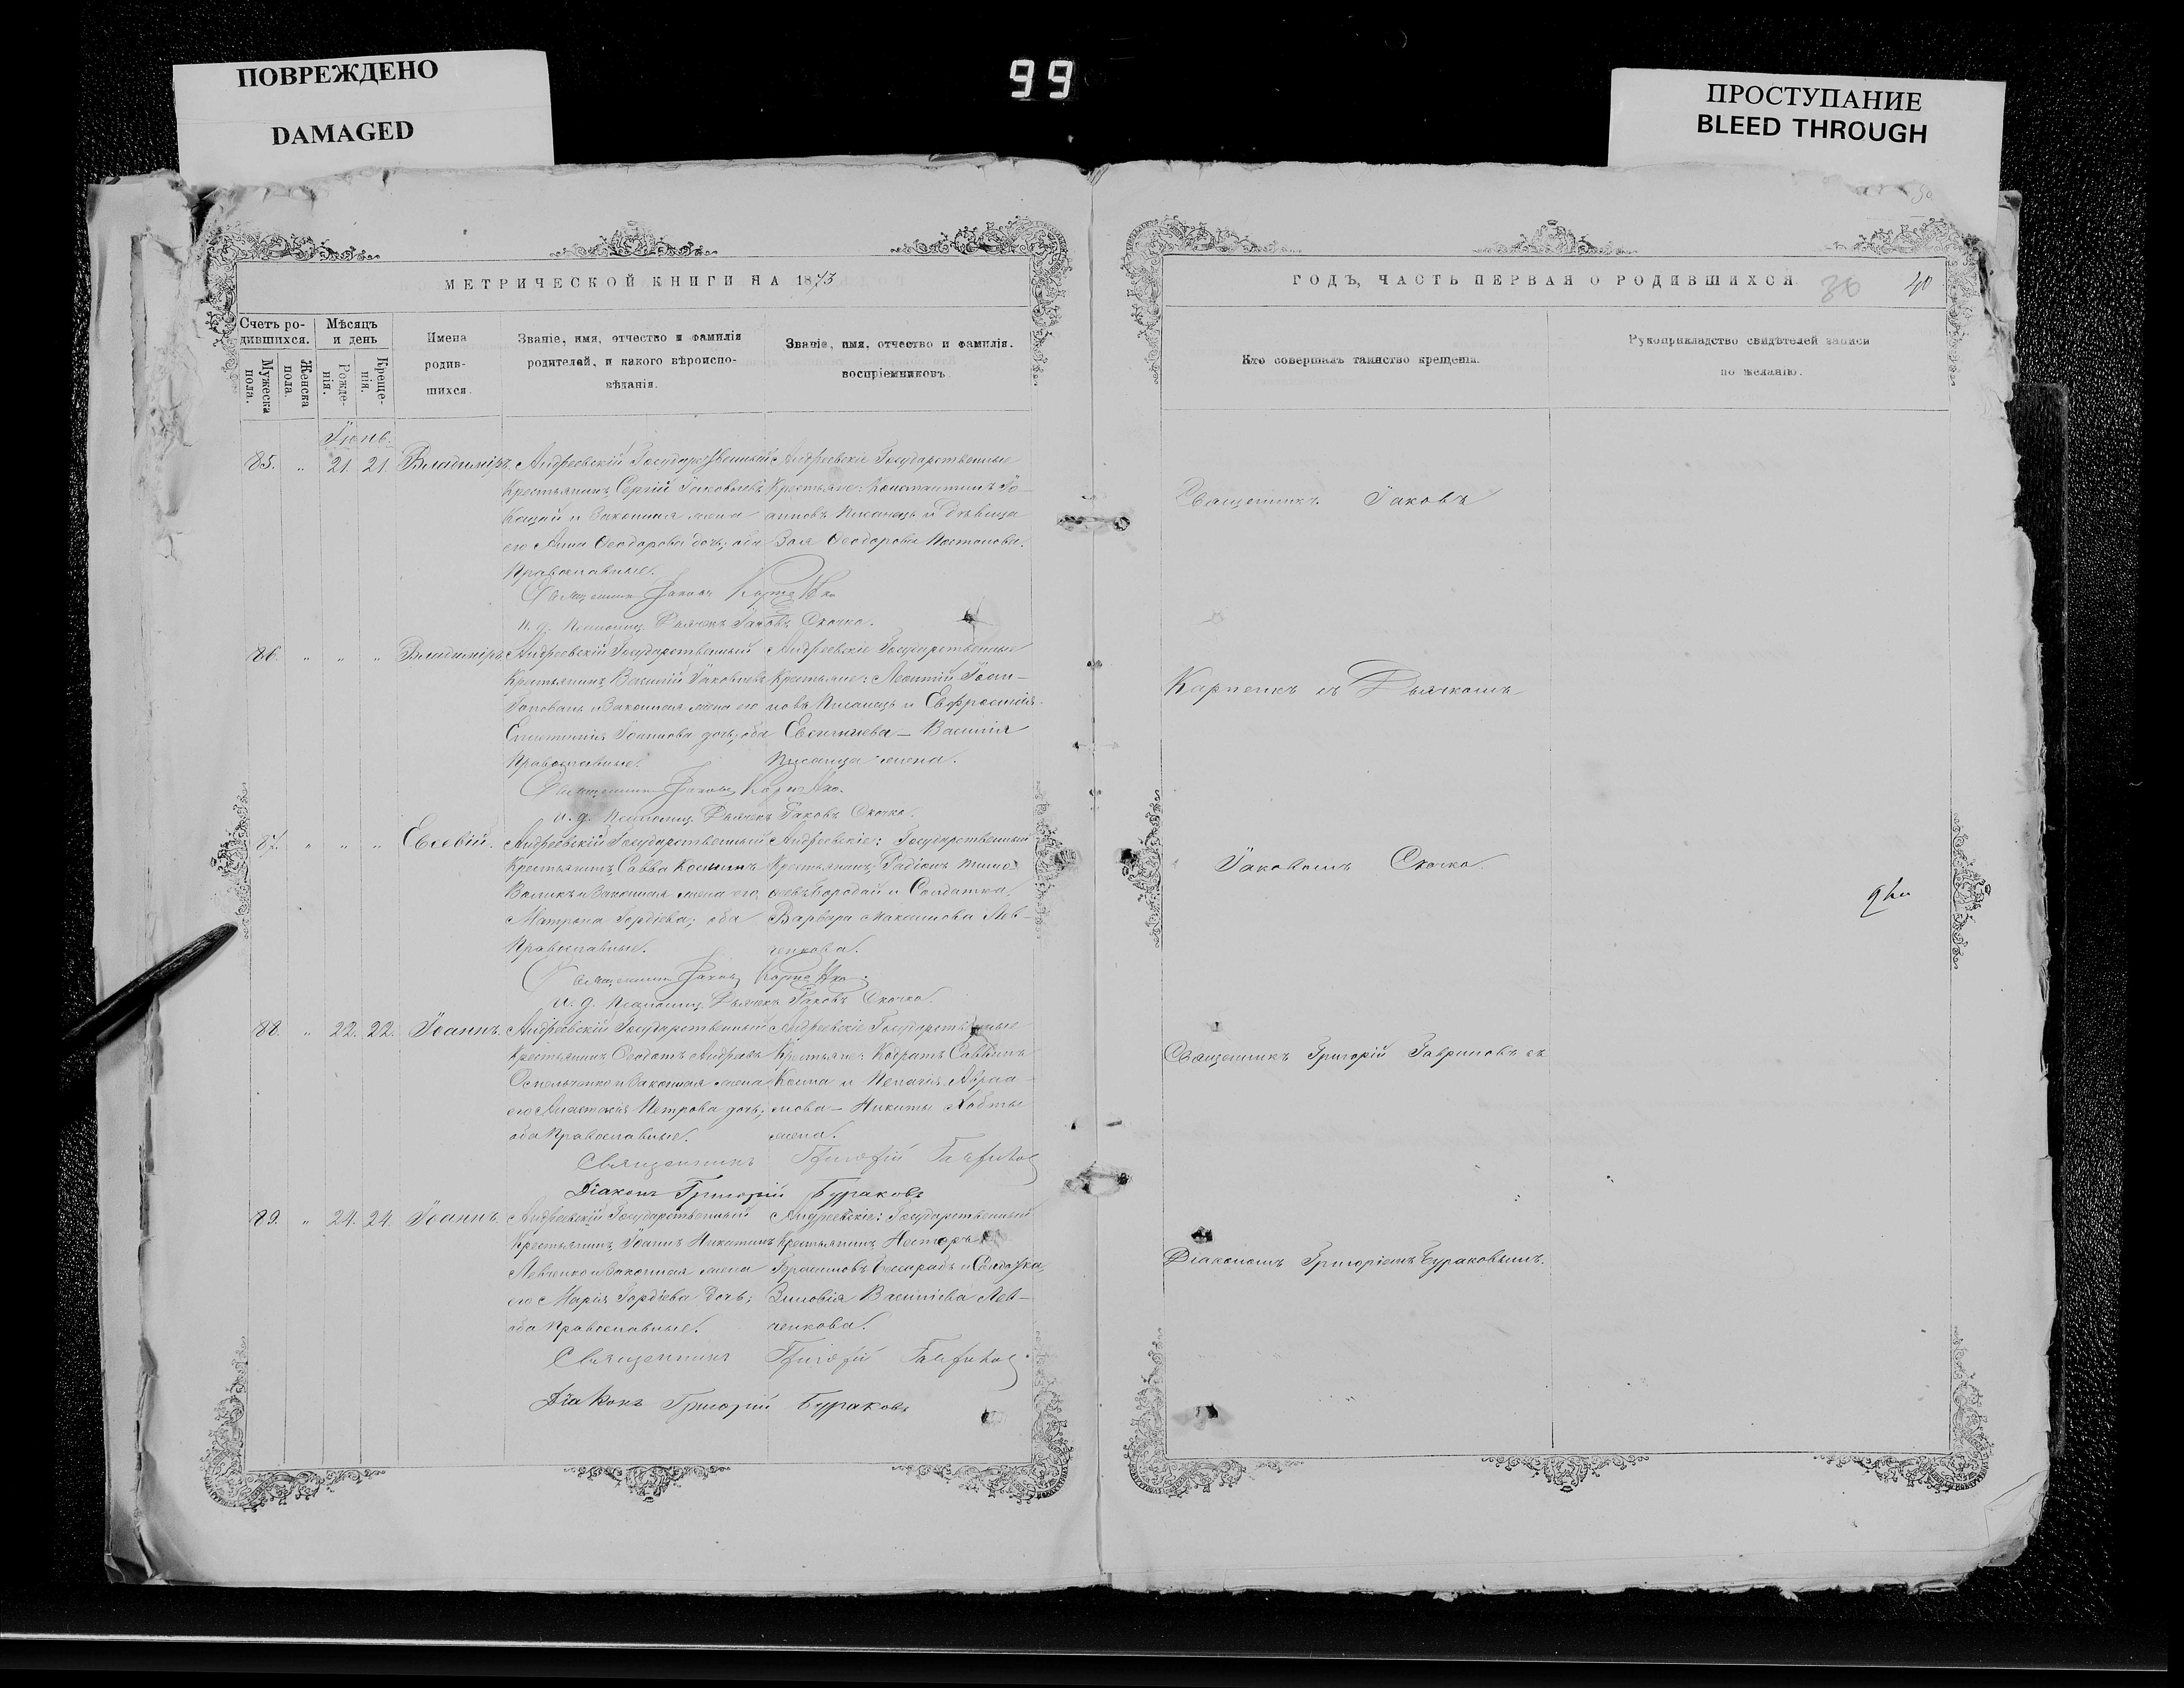 ПОВРЕЖДЕНО
DAMAGED
99
ПРОСТУПАНИЕ
BLEED THROUGH
МЕТРИЧЕСКОЙ КНИГИ НА 1873
Счетъ ро-
дившихся.
Мужеска пола.
Женска пола.
Мѣсяцъ
и день
Рожде-
нія.
Креще-
нія.
Имена
родив-
шихся.
Званіе, имя, отчество и фамилія
родителей, и какого вѣроиспо-
вѣданія.
Званіе, имя, отчество и фамилія.
воспріемниковъ.
Іюнь.
85. " 21. 21. Владиміръ
Андреевскій Государственный
Крестьянинъ Сергій Іаковлевъ
и Законная жена
его Анна Ѳеодорова дочь; оба
Православные.
Андреевскіе Государственные
Крестьяне: Константинъ Іо-
анновъ Писанецъ и Дѣвица
Ѳеодорова
Священникъ Іаковъ Карпенко
и. д. Псаломщ. Дьячекъ Іаковъ Скочко.
86. " " " Владиміръ
Андреевскій Государственный
Крестьянинъ Василій Іаковлевъ
и Законная жена его
Іоаннова дочь; оба
Православные.
Андреевскіе Государственные
Крестьяне: Леонтій Іоан-
новъ Писанецъ и Евфросинія
Евсигніева — Василія
Писанца жена.
Священникъ Іаковъ Карпенко.
и. д. Псаломщ. Дьячекъ Іаковъ Скочко.
87. " " " Евсевій.
Андреевскій Государственный
Крестьянинъ Савва Косминъ
Воликъ и Законная жена его
Матрона Гордіева; оба
Православные.
Андреевскіе: Государственный
Крестьянинъ Родіонъ Тимо
ѳеевъ Бородай и Солдатка
Варвара Максимова Лев-
ченкова.
Священникъ Іаковъ Карпенко.
и. д. Псаломщ. Дьячекъ Іаковъ Скочко.
88. " 22. 22. Іоаннъ.
Андреевскій Государственный
Крестьянинъ Ѳеодотъ Андреевъ
и Законная жена
его Анастасія Петрова дочь;
оба Православные.
Андреевскіе Государственные
Крестьяне: Кодратъ Саввинъ
и Пелагія Авраа-
мова — Никиты
жена.
Священникъ Григорій Гавриловъ
Діаконъ Григорій Бураковъ
89. " 24. 24. Іоаннъ.
Андреевскій Государственный
Крестьянинъ Іоаннъ Никитинъ
Левченко и Законная жена
его Марія Гордіева дочь;
оба Православные.
Андреевскіе: Государственный
Крестьянинъ Несторъ
Герасимовъ Бессарабъ и Солдатка,
Зиновія Васильева Лев-
ченкова.
Священникъ Григорій Гавриловъ
Діаконъ Григорій Бураковъ
ГОДЪ, ЧАСТЬ ПЕРВАЯ О РОДИВШИХСЯ.
30
40
Кто совершалъ таинство крещенія.
Рукоприкладство свидѣтелей записи
по желанію.
Священникъ Іаковъ
Карпенко съ Дьячкомъ
Іаковомъ Скочко
Священникъ Григорій Гавриловъ съ
Діакономъ Григоріемъ Бураковымъ.